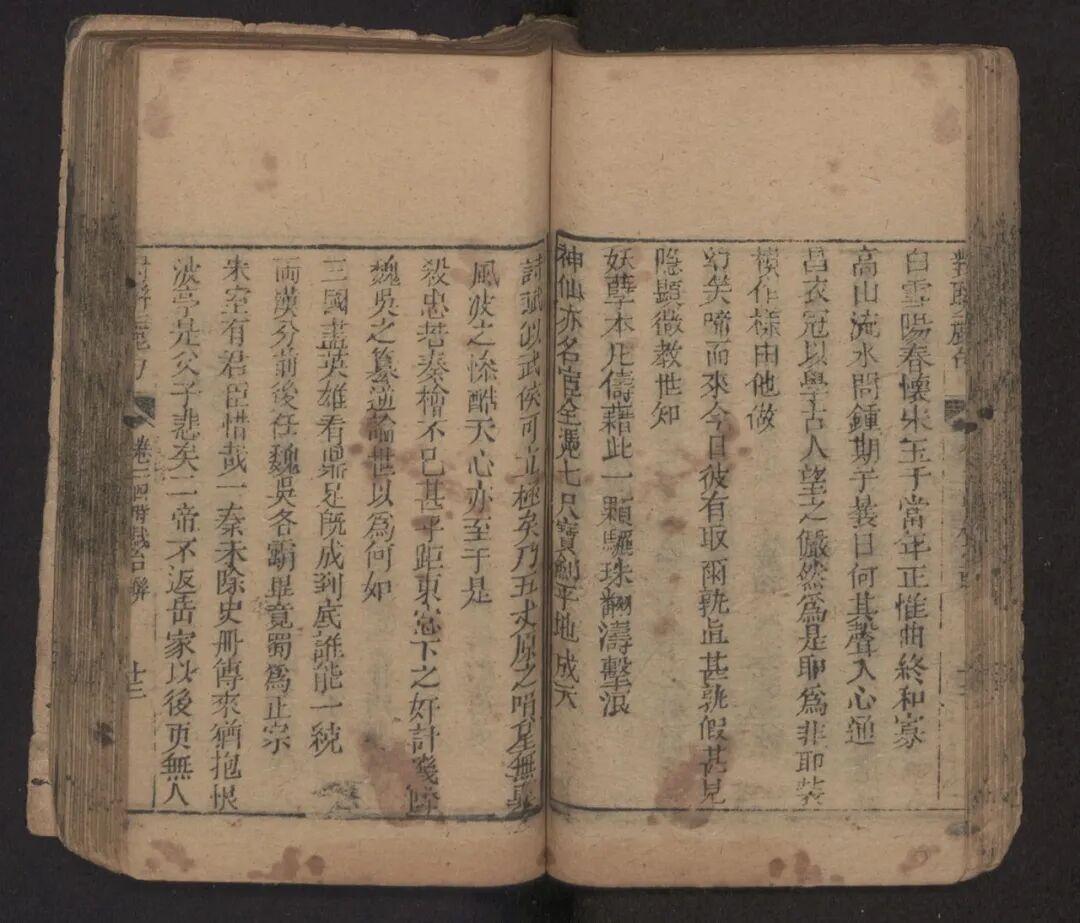 白雪陽春懷宋玉于當年正惟曲終和寡
高山流水問鍾期于曩日何其聲入心通
昌衣冠以學古人望之儼然爲是耶爲非耶裝
模作樣由他做
幻矣啼而來今日彼有取爾孰眞甚孰假甚見
隱顯微教世知
妖孽本凡儔藉此一顆驪珠翻濤擊浪
神仙亦名宦全憑七尺寶劍平地成天
詩武侯可並極矣乃五丈原之隕星無
風波之慘酷天心亦至于是
殺忠若秦檜不已甚乎距東窓下之奸計殘
魏吳之篡逆論世以爲何如
三國盡英雄看鼎足旣成到底誰能一統
兩漢分前後任魏吳各霸畢竟蜀爲正宗
宋室有君臣惜哉一秦未除史册傳來猶抱恨
波亭是父子悲矣二帝不返岳家以後更無人
卷十四
聯
十三